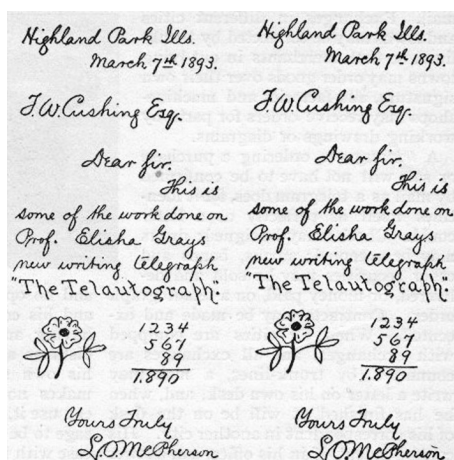 Highland Park Ills.
March 7th 1893.
F.W. Cushing Esq.
Dear sir.
This is
some of the work done on
Prof. Elisha Grays
new writing telegraph
"The Telautograph".
1234
567
89
1.890
Yours Truly
L.O. McPherson
Highland Park Ills.
March 7th 1893.
F.W. Cushing Esq.
Dear sir.
This is
some of the work done on
Prof. Elisha Grays
new writing telegraph
"The Telautograph".
1234
567
89
1.890
Yours Truly
L.O. McPherson